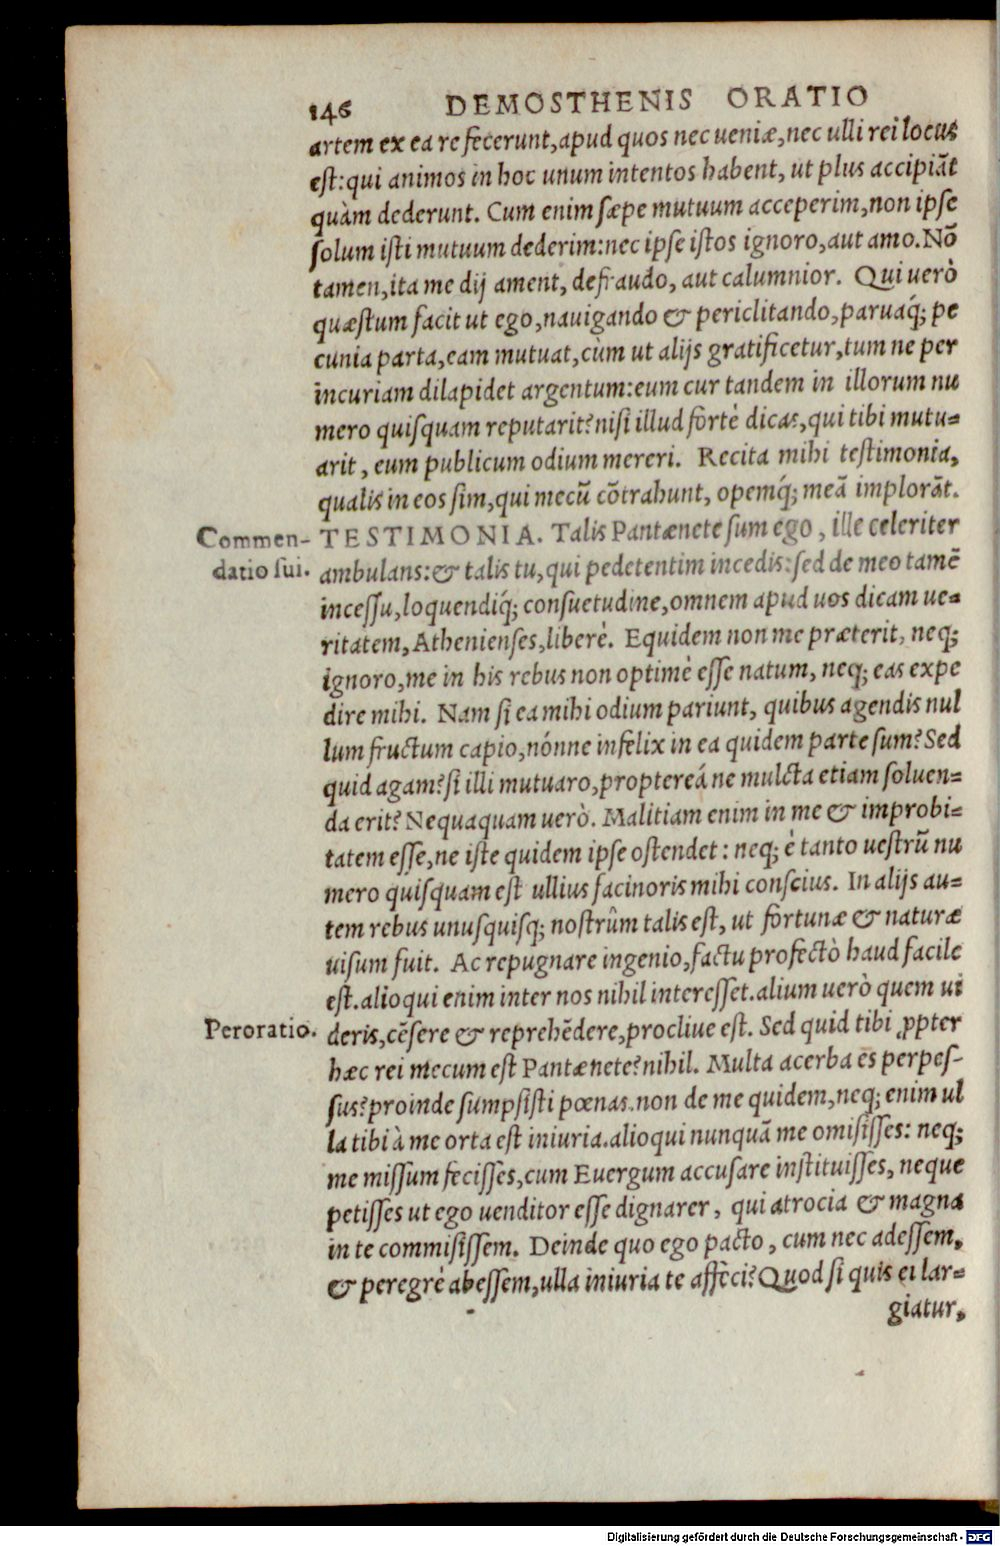 146 DEMOSTHENIS ORATIO
artem ex ea re fecerunt, apud quos nec ueniæ, nec ulli rei locus
est: qui animos in hoc unum intentos habent, ut plus accipiāt
quàm dederunt. Cum enim sæpe mutuum acceperim, non ipse
solum isti mutuum dederim: nec ipse istos ignoro, aut amo. Nō
tamen, ita me dij ament, defraudo, aut calumnior. Qui uerò
quæstum facit ut ego, nauigando & periclitando, paruaq́; pe
cunia parta, eam mutuat, cùm ut alijs gratificetur, tum ne per
incuriam dilapidet argentum: eum cur tandem in illorum nu
mero quisquam reputarit? nisi illud fortè dicas, qui tibi mutu=
arit, eum publicum odium mereri. Recita mihi testimonia,
qualis in eos sim, qui mecū cōtrahunt, opemq́; meā implorāt.
Commen- TESTIMONIA. Talis Pantænete sum ego, ille celeriter
datio sui. ambulans: & talis tu, qui pedetentim incedis: sed de meo tamē
incessu, loquendiq́; consuetudine, omnem apud uos dicam ue=
ritatem, Athenienses, liberè. Equidem non me præterit, neq;
ignoro, me in his rebus non optimè esse natum, neq; eas expe
dire mihi. Nam si ea mihi odium pariunt, quibus agendis nul
lum fructum capio, nónne infelix in ea quidem parte sum? Sed
quid agam? si illi mutuaro, proptereá ne mulcta etiam soluen=
da erit? Nequaquam uerò. Malitiam enim in me & improbi=
tatem esse, ne iste quidem ipse ostendet: neq; è tanto uestrū nu
mero quisquam est ullius facinoris mihi conscius. In alijs au=
tem rebus unusquisq; nostrûm talis est, ut fortunæ & naturæ
uisum fuit. Ac repugnare ingenio, factu profectò haud facile
est. alioqui enim inter nos nihil interesset. alium uerò quem ui
Peroratio. deris, cēsere & reprehēdere, procliue est. Sed quid tibi ꝓpter
hæc rei mecum est Pantænete? nihil. Multa acerba es perpes-
sus? proinde sumpsisti pœnas. non de me quidem, neq; enim ul
la tibi à me orta est iniuria. alioqui nunquā me omisisses: neq;
me missum fecisses, cum Euergum accusare instituisses, neque
petisses ut ego uenditor esse dignarer, qui atrocia & magna
in te commisissem. Deinde quo ego pacto, cum nec adessem,
& peregrè abessem, ulla iniuria te affeci? Quod si quis ei lar=
giatur,
Digitalisierung gefördert durch die Deutsche Forschungsgemeinschaft - DFG